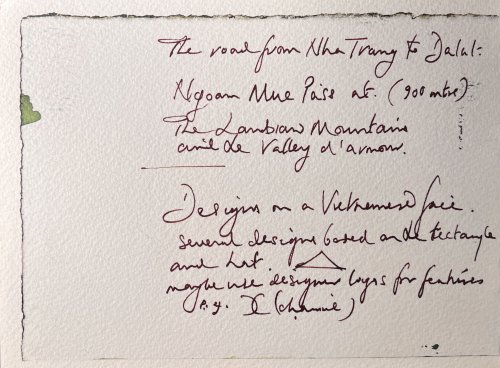 The road from Nha Trang to Dalat:
Ngoan Mue Pass at. (900 mtrs)
The Lambian Mountains
and Le Valley d'amour.
Designs on a Vietnamese face.
several designs based on Le rectangle
and hat.
maybe use designer logos for features
e.g. (chanel)